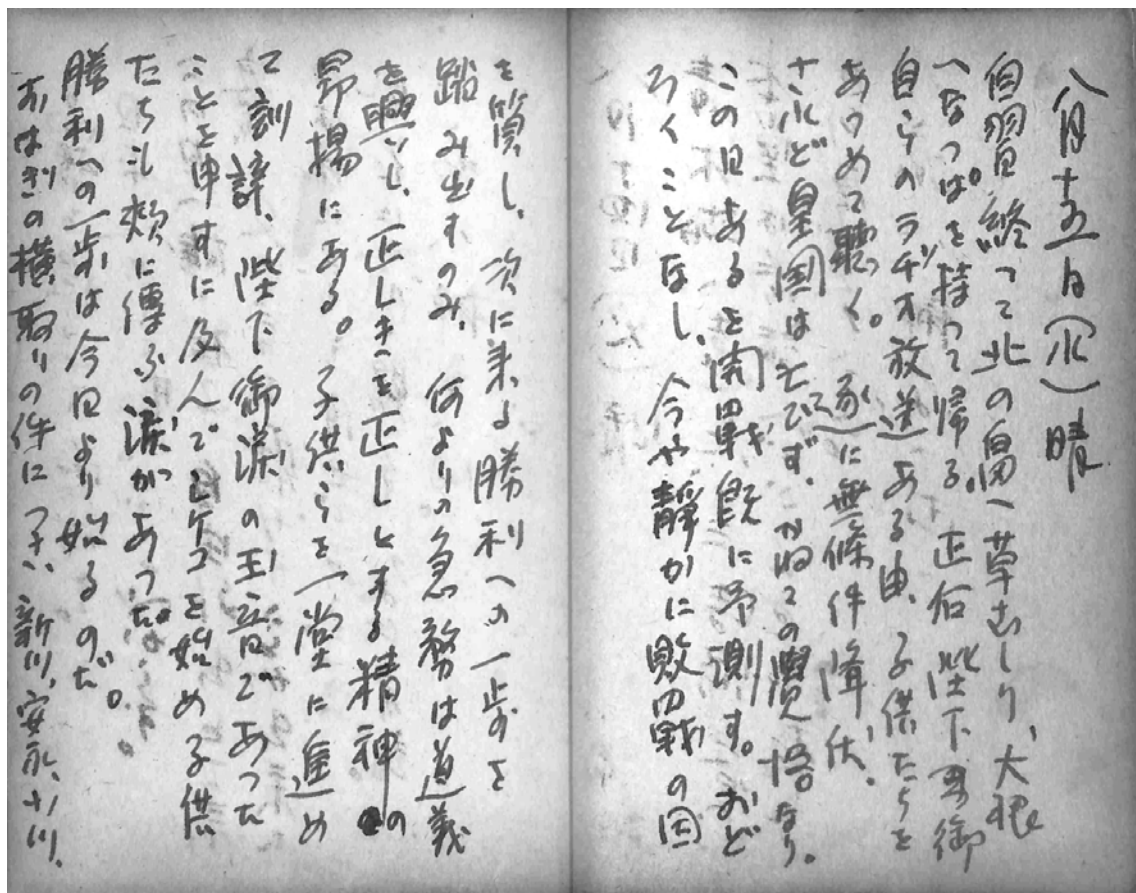 八月十五日(水)晴
自習終って北の畠へ草むしり、大根
へなっぱを持って帰る。正午陛下畏御
自らのラヂオ放送ある由、子供たちを
あつめて聴く。遂に無條件降伏、
されど皇国は亡びず、かねての覺悟なり。
この日あるを開戰既に予測す。おど
ろくことなし、今や靜かに敗戰の因
を質し、次に来る勝利への一歩を
踏み出すのみ、何よりの急務は道義
を興し、正しきを正しとする精神の
昂揚にある。子供らを一堂に進め
て訓辞、陛下御涙の玉音であった
ことを申すに及んでムケコを始め子供
たちも頬に傳ふ涙があった。
勝利への一歩は今日より始るのだ。
おはぎの横取りの件に 新川、安永、小川、